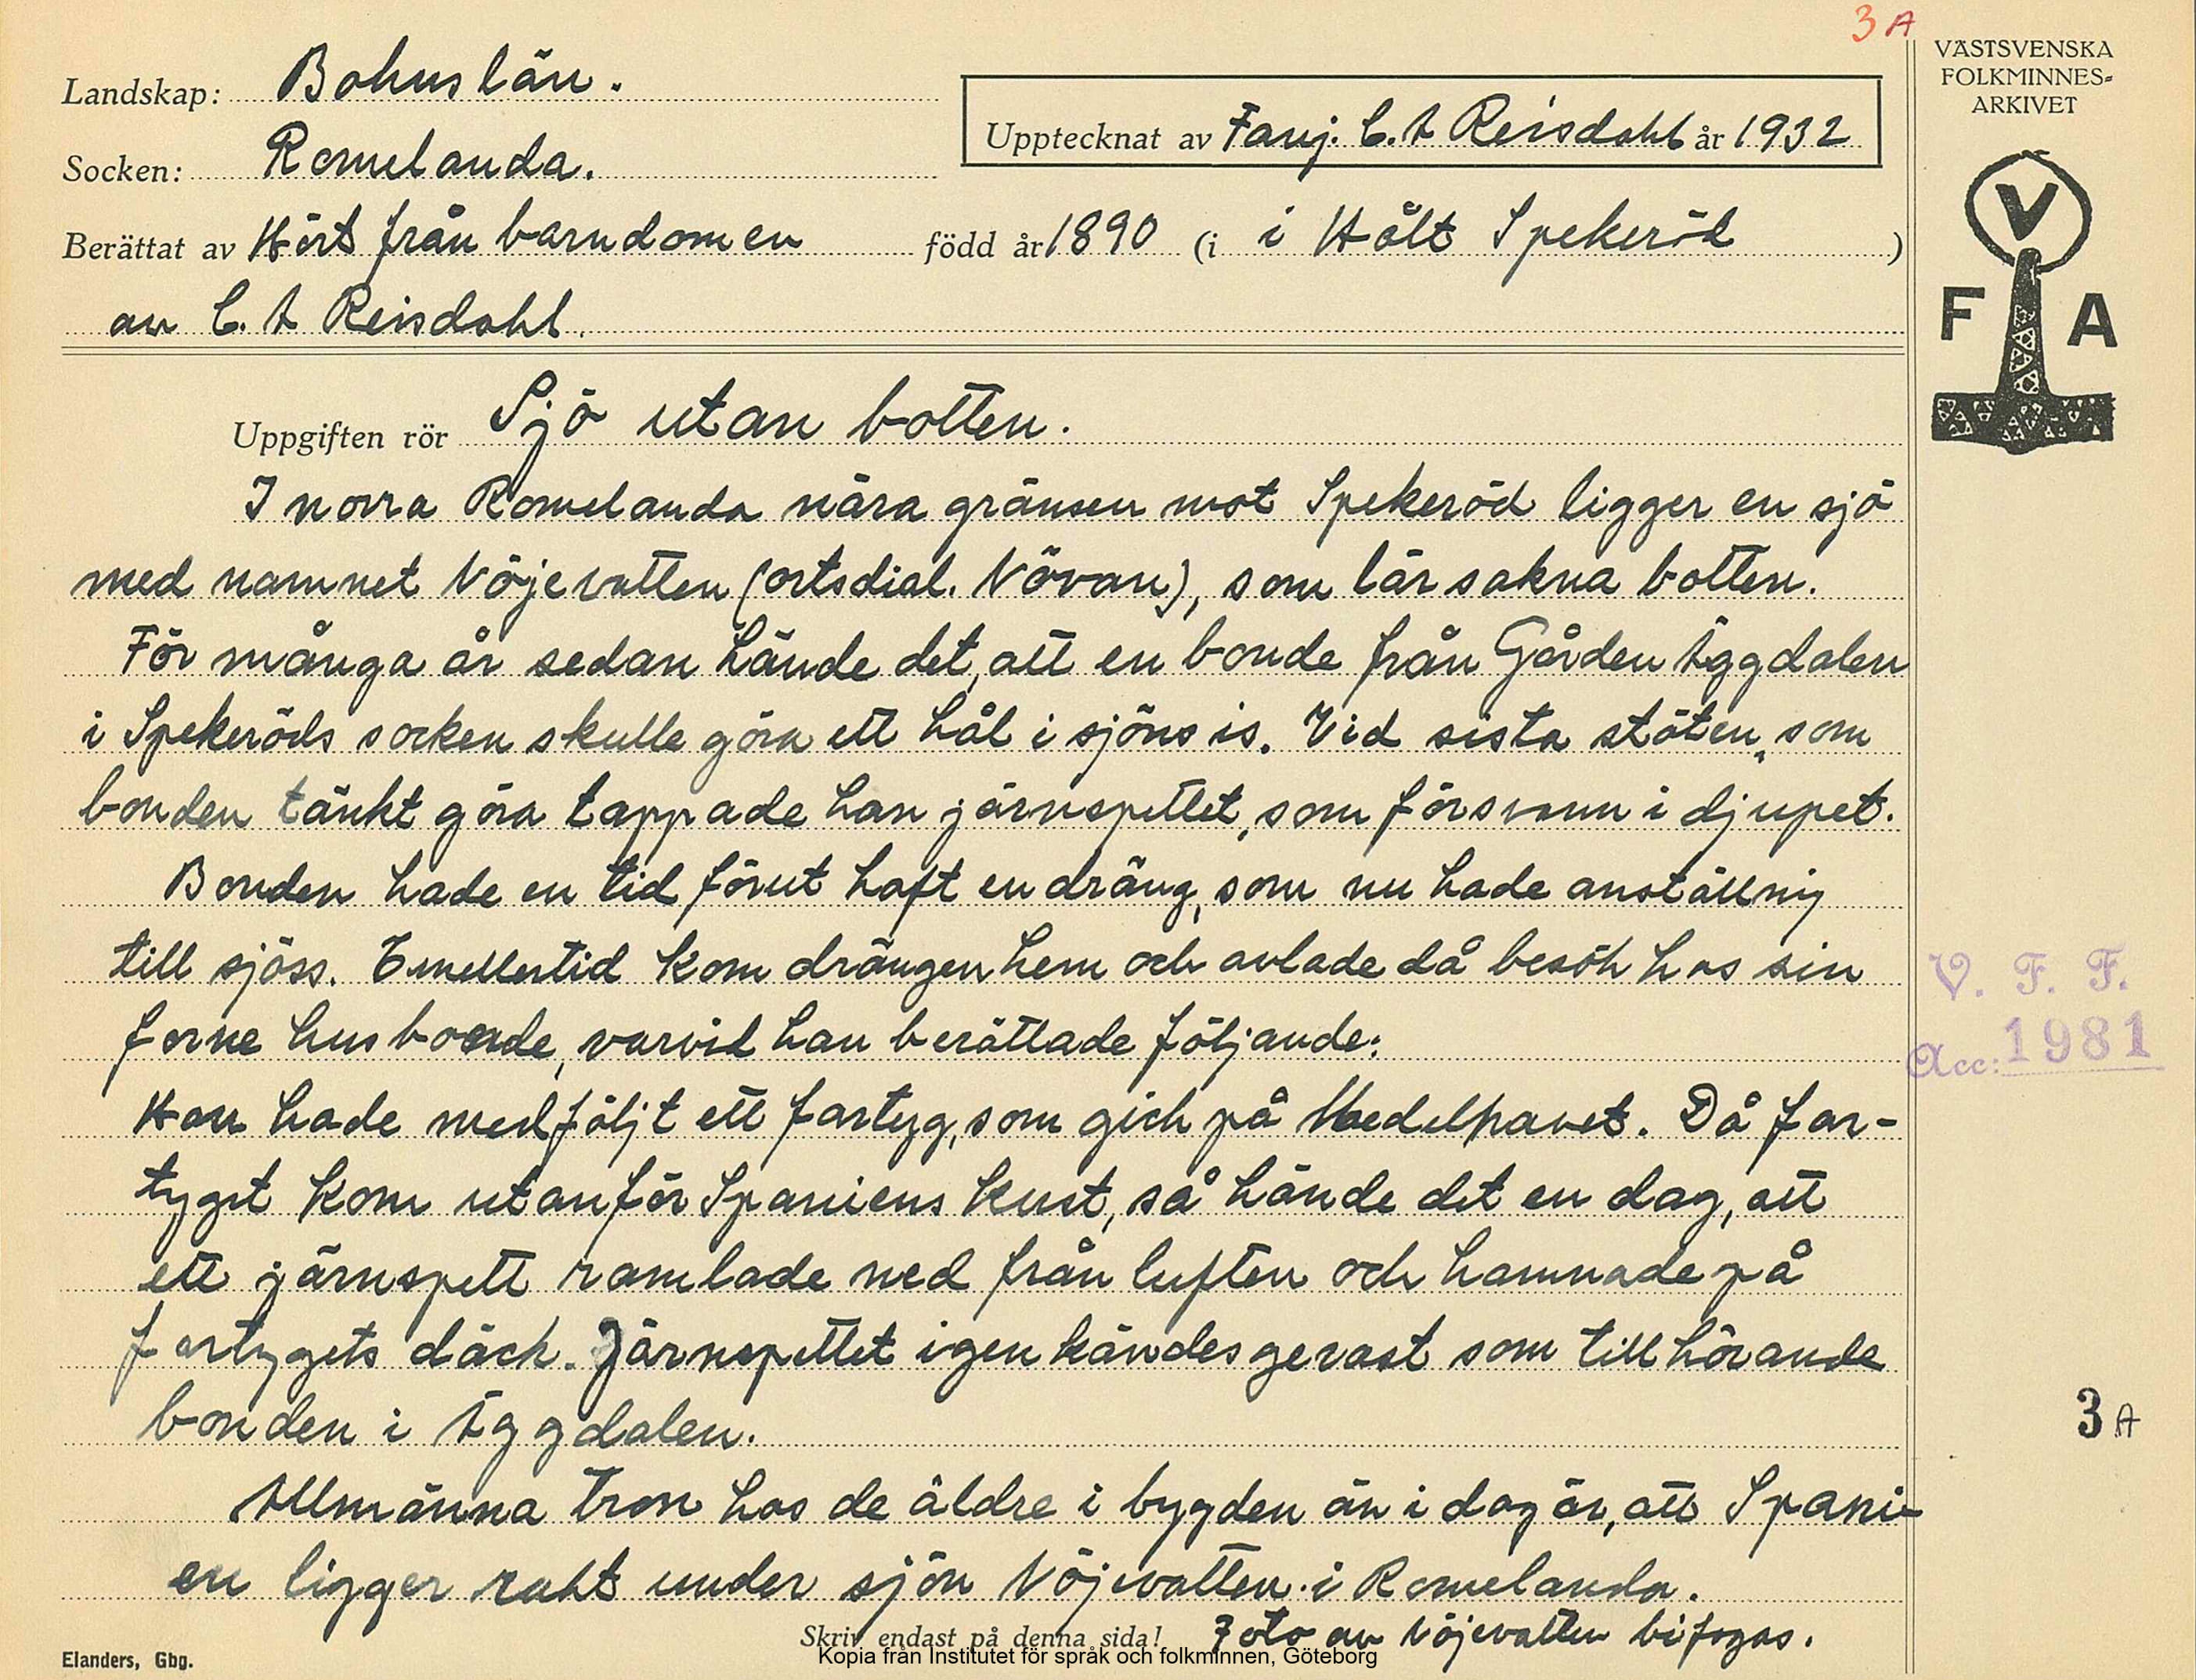 3 A
VÄSTSVENSKA
FOLKMINNES-
ARKIVET
Landskap: Bohuslän.
Upptecknat av Fanj. C. A Reisdahl år 1932
Socken: Romelanda.
Berättat av Hört från barndomen född år 1890 (i i Hålt Spekeröd )
av C. A Reisdahl.
V
F A
Uppgiften rör Sjö utan botten.
I norra Romelanda nära gränsen mot Spekeröd ligger en sjö
med namnet Nöjevatten (ortsdial. Növan), som lär sakna botten.
För många år sedan hände det, att en bonde från Gården Äggdalen
i Spekeröds socken skulle göra ett hål i sjöns is. Vid sista stöten, som
bonden tänkt göra tappade han järnspettet, som försvann i djupet.
Bonden hade en tid förut haft en dräng, som nu hade anställnig
till sjöss. Emellertid kom drängen hem och avlade då besök hos sin
forne husbonde, varvid han berättade följande:
Han hade medföljt ett fartyg, som gick på Medelhavet. Då far-
tyget kom utanför Spaniens kust, så hände det en dag, att
ett järnspett ramlade ned från luften och hamnade på
fartygets däck. Järnspettet igenkändes genast som tillhörande
bonden i Äggdalen.
Allmänna tron hos de äldre i bygden än i dag är, att Spani-
en ligger rakt under sjön Nöjevatten i Romelanda.
Skriv endast på denna sida! Foto av Nöjevatten bifogas.
V. F. F.
Acc: 1981
3 A
Elanders, Gbg.
Kopia från Institutet för språk och folkminnen, Göteborg